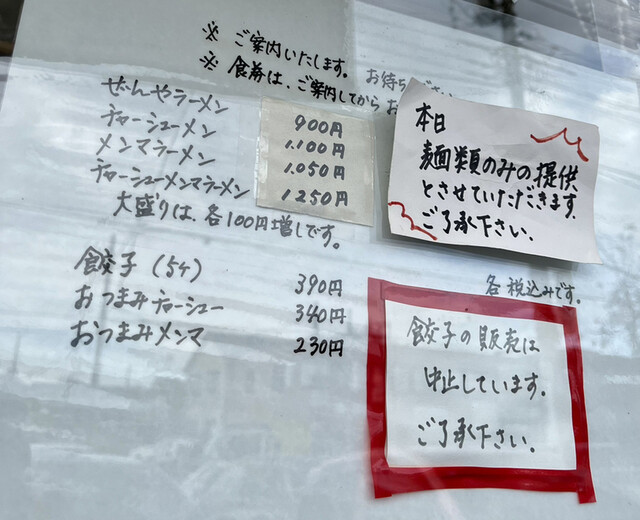 ※ ご案内いたします。 お待ち
※ 食券は、ご案内してから お
ぜんやラーメン 900円
チャーシューメン 1.100円
メンマラーメン 1.050円
チャーシューメンマラーメン 1250円
大盛りは、各100円増しです。
餃子 (5ケ) 390円
おつまみチャーシュー 340円
おつまみメンマ 230円
各税込みです。
本日
麺類のみの提供
とさせていただきます.
ご了承下さい.
餃子の販売は
中止しています.
ご了承下さい.